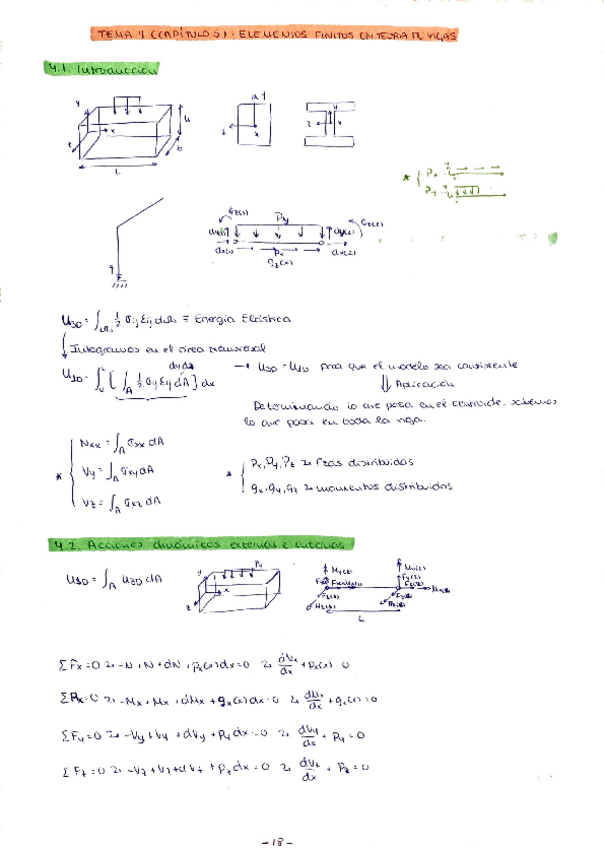 TEMA 4 (CAPÍTULO 5): ELEMENTOS FINITOS EN TEORIA DE VIGAS
4.1. Introducción
y
x
z
h
b
L
y
z
x
z
y
* { Px
Py
q
Gz(1)
dy(1)
dx(1)
Py
Px
qz(x)
dy(2)
Gz(2)
dx(2)
U3D = ∫ 1/2 σij εij dΩ ≡ Energía Elástica
Integramos en el área transversal
U1D = ∫ [ ∫A 1/2 σij εij dA ] dx → U3D = U1D para que el modelo sea consistente
dydz
Aplicación
Determinando lo que pasa en el centroide, sabemos
lo que pasa en toda la viga.
* { Nxx = ∫A σxx dA
Vy = ∫A σxy dA
Vz = ∫A σxz dA
* { Px, Py, Pz → Fzas distribuidas
qx, qy, qz → momentos distribuidos
4.2. Acciones dinámicas externas e internas
U1D = ∫A U3D dA
y
x
z
Py
My(1)
Mz(1)
My(2)
Fy(2)
Fx(2)
Mx(2)
L
ΣFx = 0 → -N + N + dN + px(x)dx = 0 → dNx/dx + px(x) = 0
ΣMx = 0 → -Mx + Mx + dMx + qx(x)dx = 0 → dMx/dx + qx(x) = 0
ΣFy = 0 → -Vy + Vy + dVy + Py dx = 0 → dVy/dx + Py = 0
ΣFz = 0 → -Vz + Vz + dVz + Pz dx = 0 → dVz/dx + Pz = 0
- 18 -